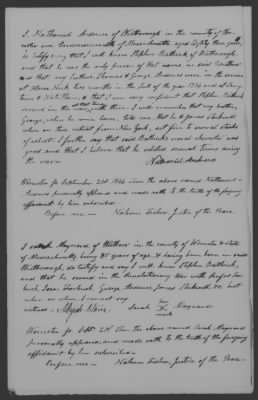 I, Nathaniel Andrews of Westborough in the county of Wor-
cester and Commonwealth of Massachusetts aged Eighty three years,
do testify & say that, I well knew Stephen Bathrick of Westborough
and that he was the only person of that name in said Westboro'
and that my brothers Thomas & George Andrews were in the service
at Horse Neck two months in the fall of the year 1776 and at Tarry
town & White Plains, & that I am very confident that Stephen Bathrick
served in the with them; I well remember that my brother,
George, when he came home, told me that he & Jonas Stickwell
when on their retreat from New York, set fire to several stacks
of wheat. I further say that said Bathrick's moral character was
good and that I believe that he enlisted several times during
the war.
Nathaniel Andrews
Worcester ss September 21st 1844 Then the above named Nathaniel
Andrews personally appeared and made oath to the truth of the foregoing
affidavit by him subscribed
Before me — Nahum Fisher Justice of the Peace
I Maynard of Westboro' in the county of Worcester & state
of Massachusetts being 85 years of age, & having been born in said
Westborough, do testify and say I well knew Stephen Bathrick,
and that he served in the Revolutionary War with Rufus For-
bush, Isaac Forbush, George Andrews Jonas Stickwell &c but
when or where I cannot say
witness — Elijah Stone Sarah her Maynard
mark
Worcester ss. Sept. 21st Then the above named Sarah Maynard
personally appeared, and made oath to the truth of the foregoing
affidavit by her subscribed —
Before me — Nahum Fisher, Justice of the Peace.